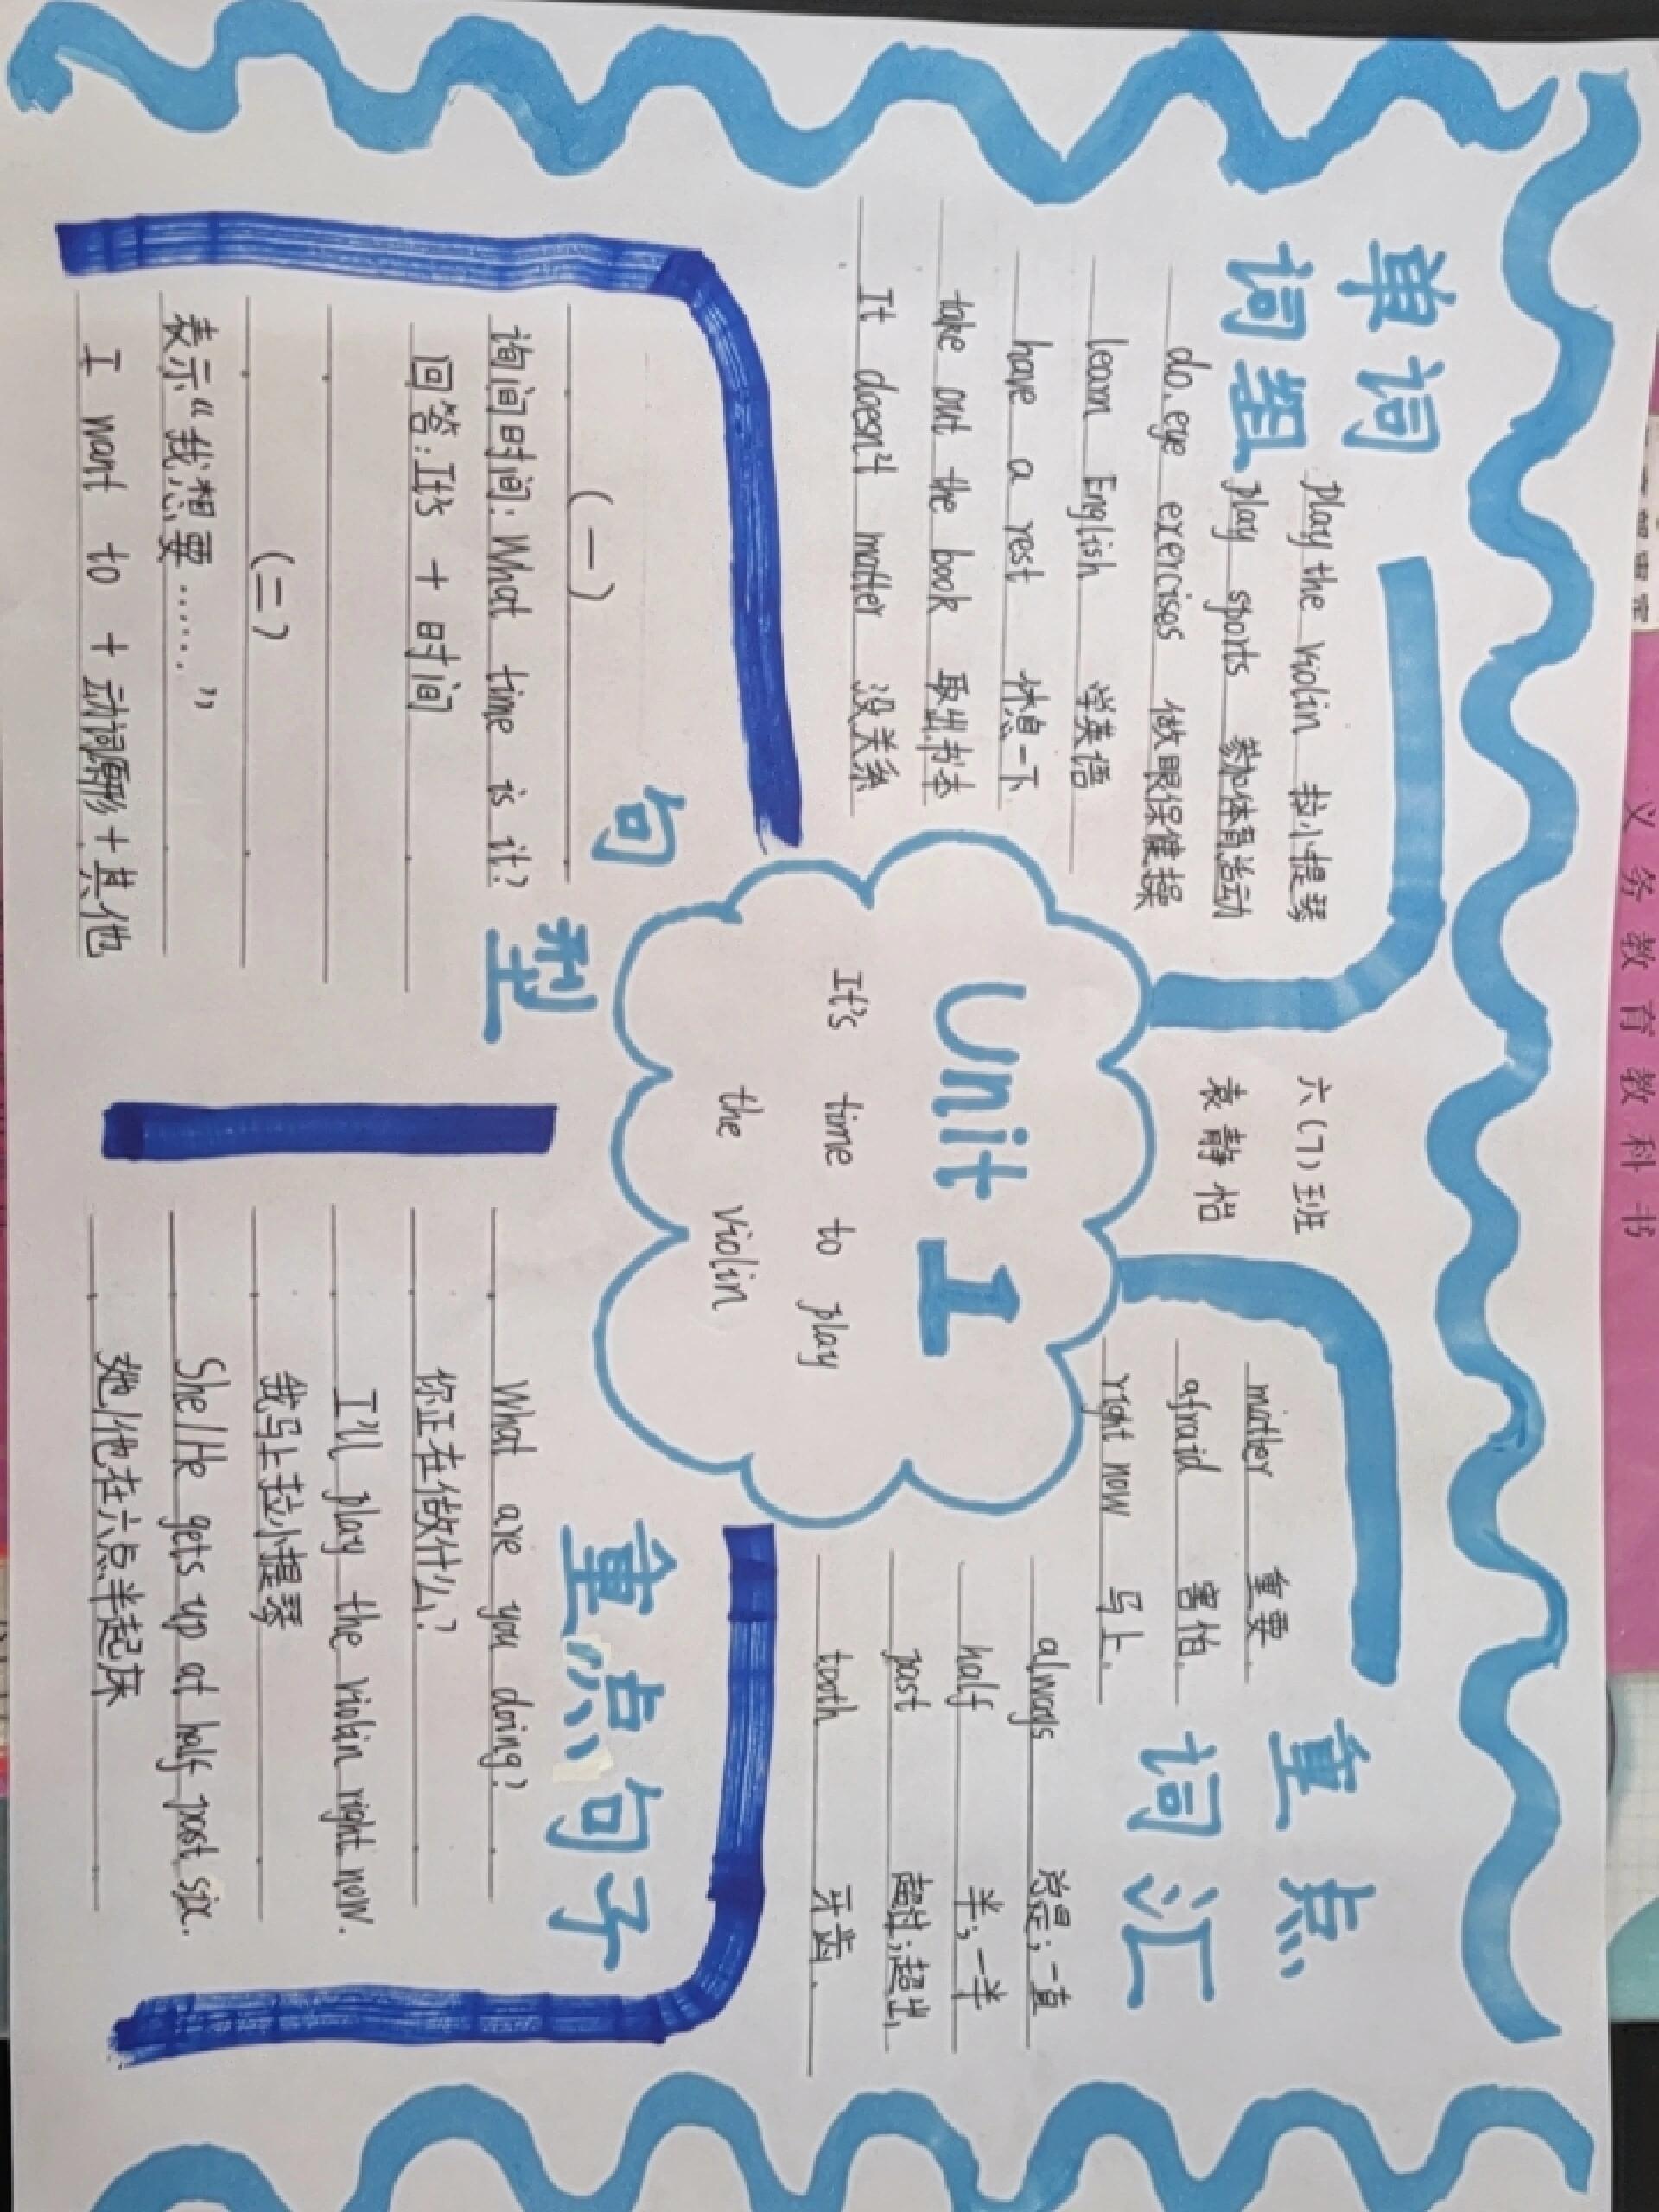 义务教育教科书
六(7)班
袁静怡
Unit 1
It's time to play
the violin
单词
词组
play the violin 拉小提琴
play sports 参加体育活动
do eye exercises 做眼保健操
learn English 学英语
have a rest 休息一下
take out the book 取出书本
It doesn't matter 没关系
重点
词汇
matter 重要
afraid 害怕
right now 马上
always 总是;一直
half 半;一半
past 超过;超出
tooth 牙齿
句型
(一)
询问时间:What time is it?
回答:It's + 时间
(二)
表示“我想要……”
I want to + 动词原形 + 其他
重点句子
What are you doing?
你正在做什么?
I'll play the violin right now.
我马上拉小提琴
She/He gets up at half past six.
她/他在六点半起床